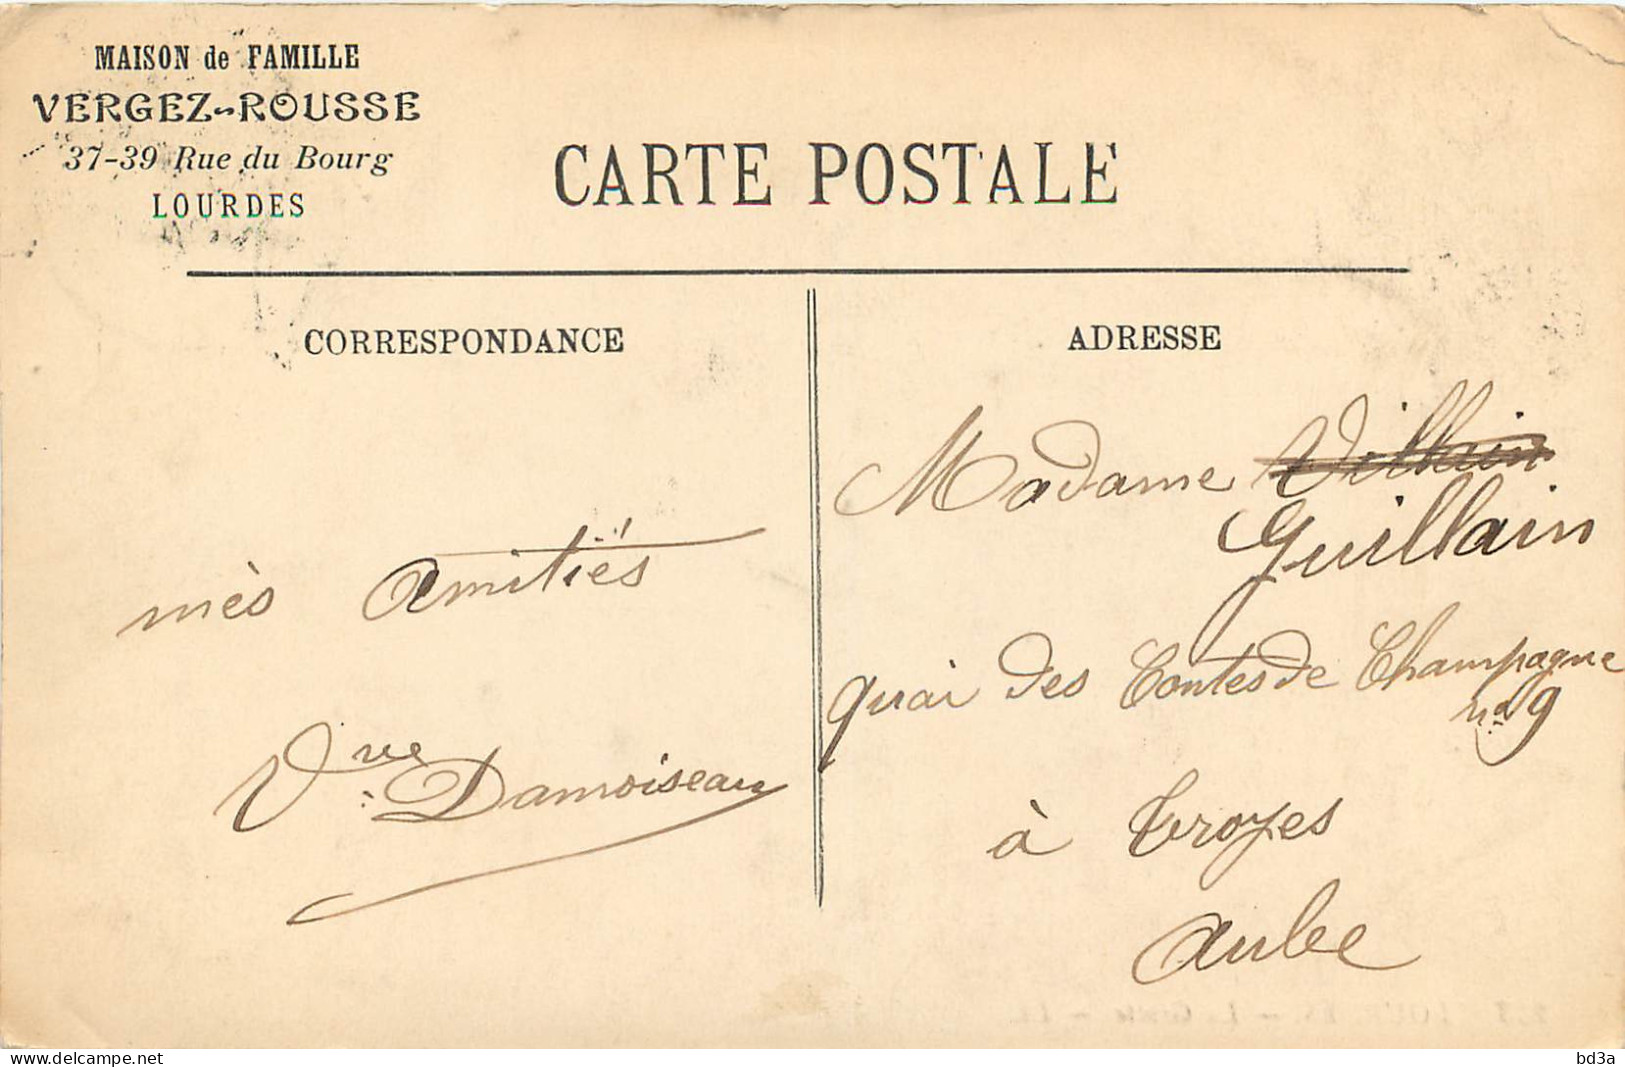 MAISON de FAMILLE
VERGEZ-ROUSSE
37-39 Rue du Bourg
LOURDES
CARTE POSTALE
CORRESPONDANCE
mès Amitiés
Vve Damoiseau
ADRESSE
Madame Villain
Guillain
quai des Contes de Champagne
no 9
à Troyes
Aube
www.delcampe.net
bd3a